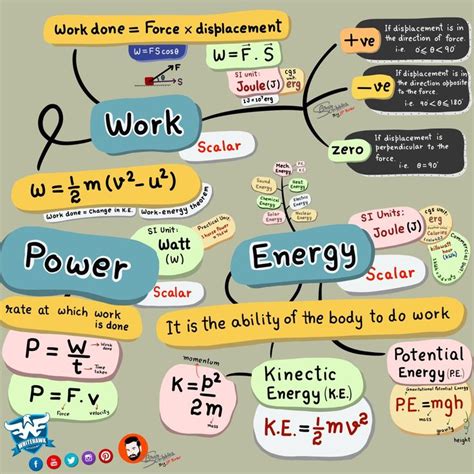 Work done = Force × displacement
W = FS cosθ
W = F⃗ . S⃗
F
S
SI unit:
Joule(J)
cgs unit
erg
1J = 10⁷ erg
+ve
If displacement is in
the direction of force.
i.e. 0≤θ<90°
-ve
If displacement is in
the direction opposite
to the force.
i.e. 90°<θ≤180
zero
If displacement is
perpendicular to the
force.
i.e. θ=90°
Work
Scalar
W = 1/2 m (v² - u²)
Work done = Change in K.E.
Work-energy theorem
Mech. Energy
Sound Energy
Heat Energy
Chemical Energy
Light Energy
Solar Energy
Nuclear Energy
Power
SI Unit:
Watt
(W)
Practical Unit
Scalar
Energy
SI Units:
Joule(J)
cgs unit
erg
Scalar
rate at which work
is done
It is the ability of the body to do work
P = W/t
Work done
Time taken
P = F.v
Force
velocity
momentum
K = p²/2m
mass
Kinectic
Energy (K.E.)
K.E. = 1/2 mv²
mass
Potential
Energy (P.E.)
Gravitational Potential Energy
P.E. = mgh
mass
gravity
height
WHITEHAWK